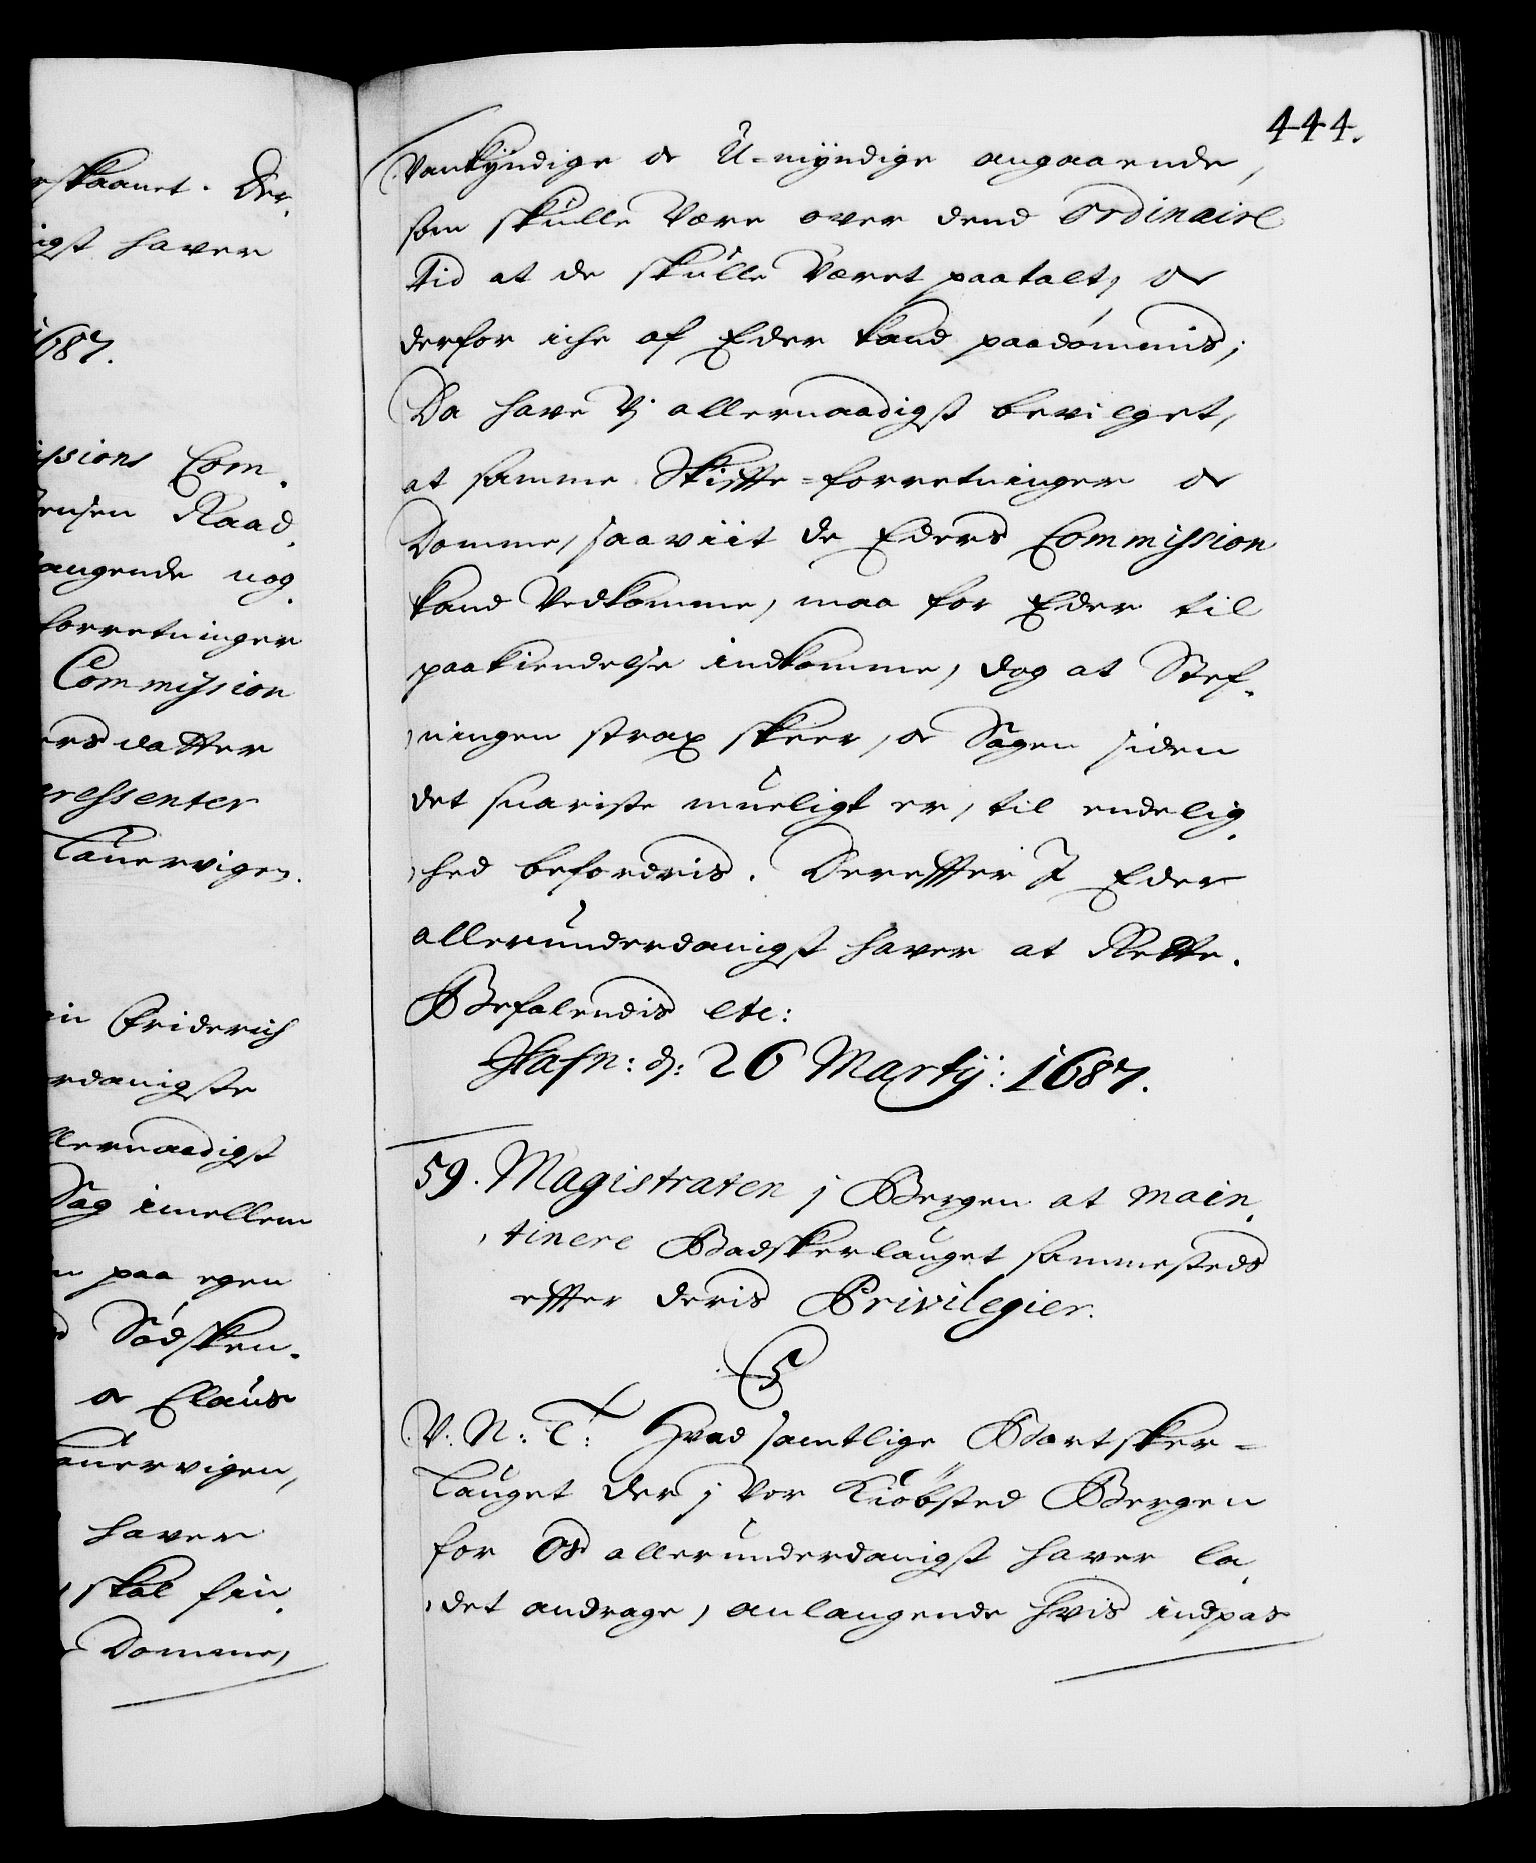 rskaanet. Der,
igst haver
1687.
issions Com,
ensen Raad,
angende nog,
forretninger
Commission
ersdatter
eressenter
Lauervigen.
in Friderich
rdanigste
llernaadigst
Sag imellem
n paa egen
Södsken,
oc Claus
auervigen,
haver
skal fin,
Domme,
444.
Vankyndige oc U-myndige angaaende,
som skulle være over dend ordinaire
tid at de skulle været paatalt, oc
derfor iche af Eder kand paadömmis;
Da have Vj allernaadigst bevilget,
at samme Skiffte-forretninger oc
Domme, saaviit de Eders Commission
kand vedkomme, maa for Eder til
paakiendelse indkomme, dog at Stef,
,ningen strax skeer, oc Sagen siden
det snariste mueligt er, til endelig,
,hed befordris. Dereffter I Eder
allerunderdanigst haver at Rette.
Befalendis etc:
Hafn: d: 26 Martij: 1687.
59. Magistraten j Bergen at main,
,tinere Badskerlauget sammesteds
effter deris Privilegier.
C5
V: N: T: Hvad samtlige Bartsker=
Lauget der j vor Kiöbsted Bergen
for Os allerunderdanigst haver la,
,det andrage, anlangende hvis indpas